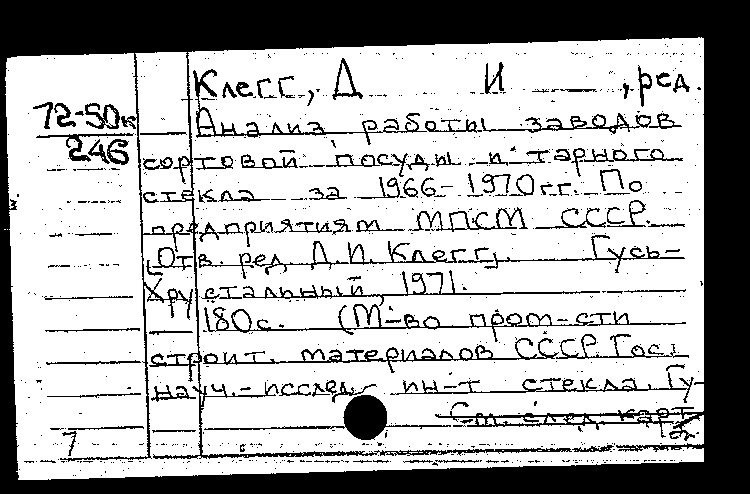 Клегг, Д И , ред.
72-50к
246
Анализ работы заводов
сортовой посуды и тарного
стекла за 1966-1970гг. По
предприятиям МПСМ СССР.
[Отв. ред. Д.И. Клегг]. Гусь-
Хрустальный, 1971.
180с. (М-во пром-сти
строит. материалов СССР. Гос.
науч.-исслед. ин-т стекла. Гу-
См. след. карт.
7